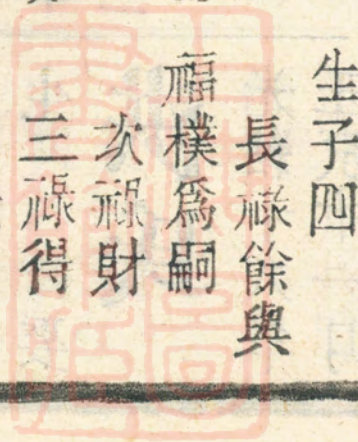 生子四
長祿餘與
福樸爲嗣
次祿財
三祿得